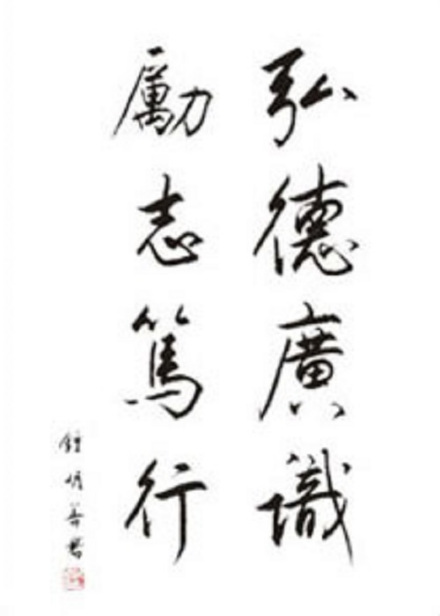 弘德廣識
勵志篤行
鍾明善書